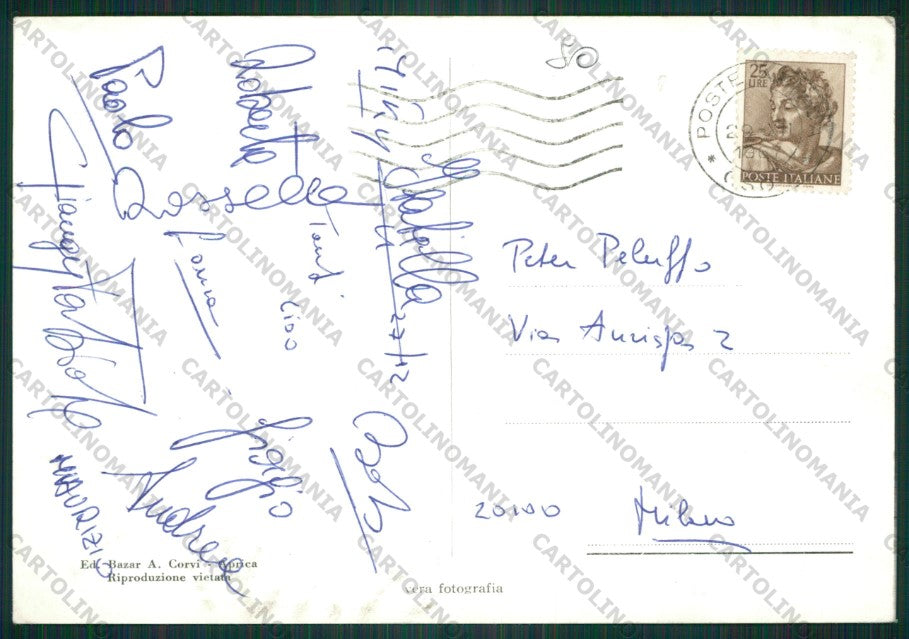 50
25
LIRE
POSTE ITALIANE
POSTE
Paolo
Roberto
Rossella
Isabella
27/12
Tanti
ciao
Gianpaolo
Giorgio
Andrea
MAURIZIO
Peter Peluffo
Via Aurispa 2
20100 Milano
Ed. Bazar A. Corvi - Aprica
Riproduzione vietata
vera fotografia
CARTOLINOMANIA